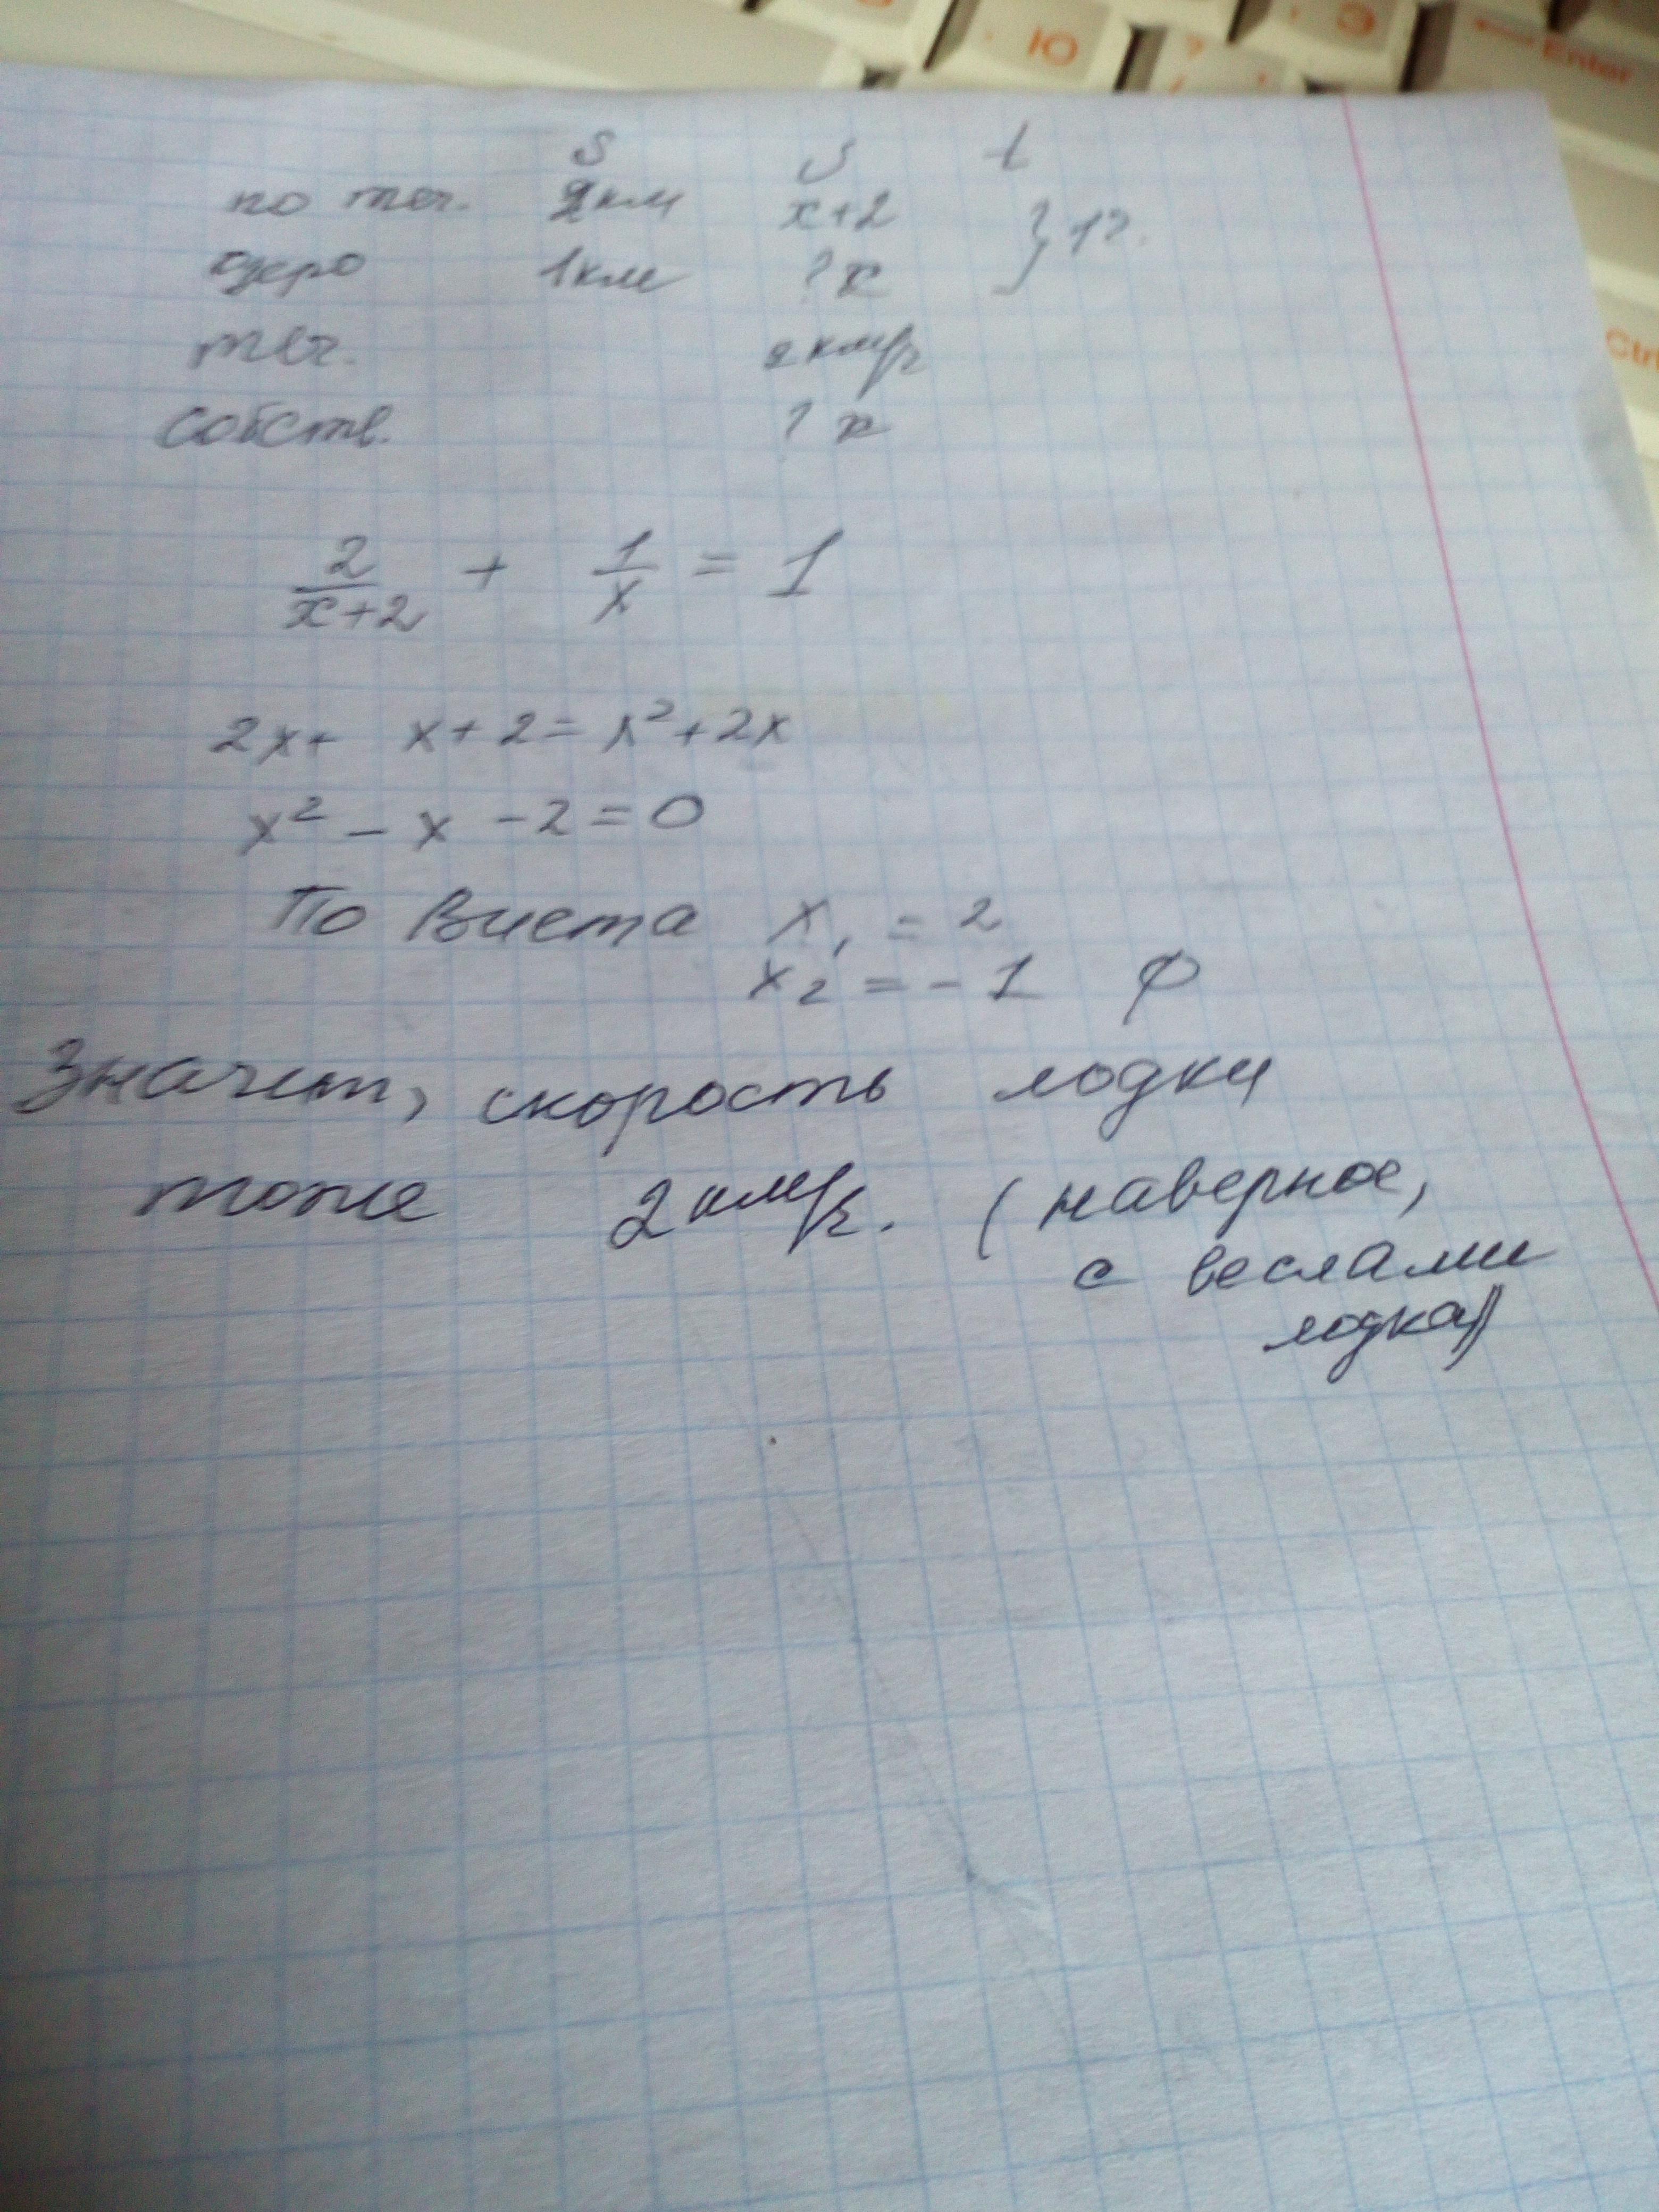 Ю
Э
Enter
Ctrl
S
υ
t
по теч. 2км x+2 } 1ч.
озеро 1км ? x
теч. 2км/ч
собств. ? x
2/(x+2) + 1/x = 1
2x+ x+2=x²+2x
x² - x -2=0
По Виета x₁ = 2
x₂ = -1 φ
Значит, скорость лодки
тоже 2км/ч. (наверное,
с веслами
лодка))